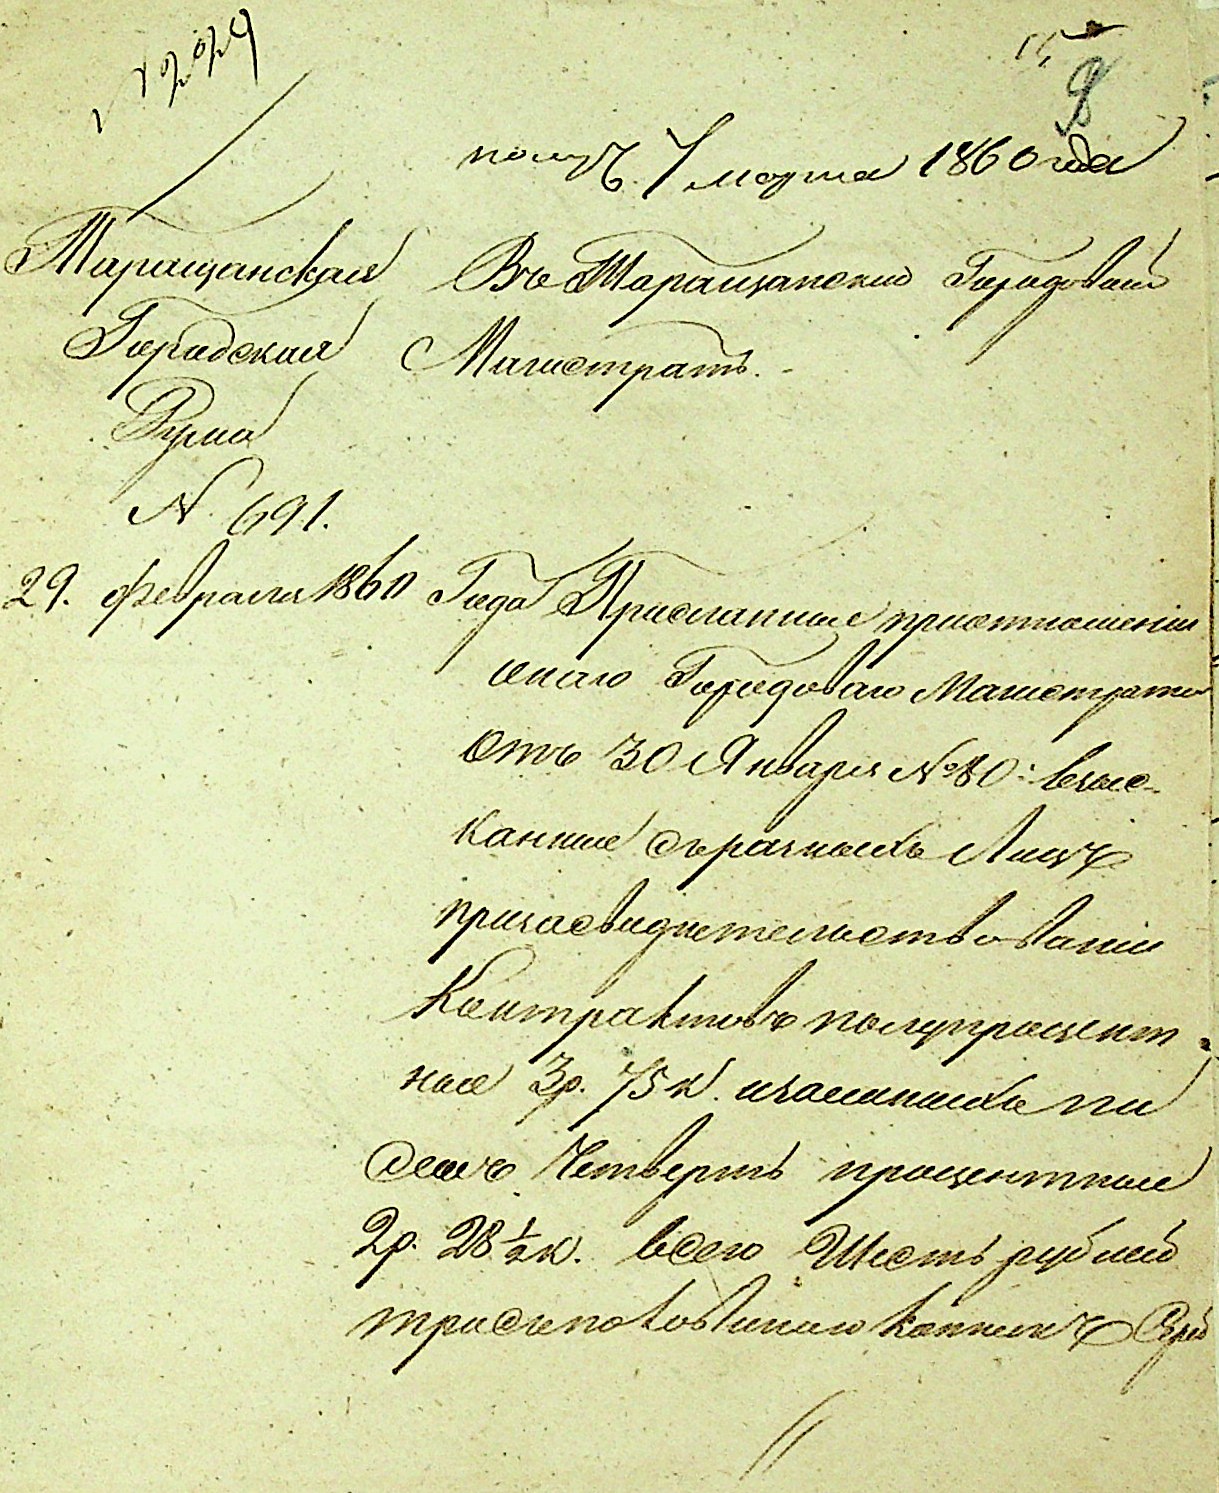 № 2029
15
8
получ. 7 марта 1860 года
Таращанская
Городская
Дума
N. 691.
29. февраля 1860
Въ Таращанский Городовый
Магистратъ.
Года Присланные приотношении
онаго Городоваго Магистрата
Отъ 30 Января № 80: взыс-
канные съразныхъ Лицъ
призасвидетельствовании
Контрактовъ полупроцент-
ные 3р. 75 к. изаминныхъ пи
семъ Четверть процентные
2р. 28 ½ к. всего Шесть рублей
трисъполовиною копеекъ Сереб